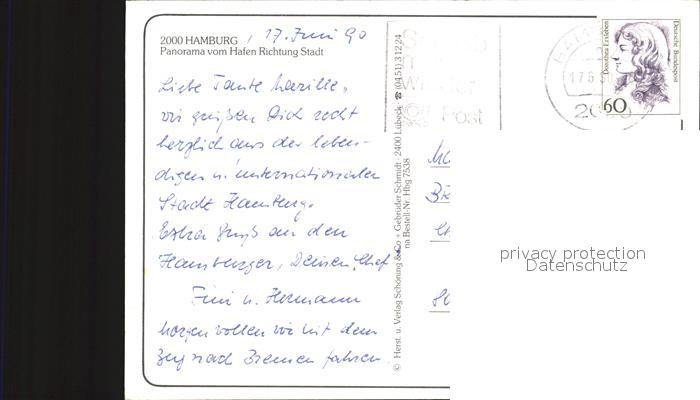 2000 HAMBURG, 17. Juni 90
Panorama vom Hafen Richtung Stadt
Liebe Tante
wir grüßen Dich recht
herzlich aus der leben-
digen u. internationalen
Stadt Hamburg.
Extra Gruß an den
Hamburger, Deinen Chef
Fini u. Hermann
Morgen wollen wir mit dem
Zug nach Bremen fahren.
© Herst. u. Verlag Schöning & Co + Gebrüder Schmidt · 2400 Lübeck ☎ (0451) 31224
na Bestell-Nr. Hbg 7538
Post
17.6.90
20
Dorothea Erxleben
Deutsche Bundespost
60
privacy protection
Datenschutz